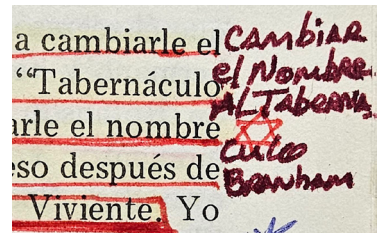 a cambiarle el
"Tabernáculo
arle el nombre
eso después de
Viviente. Yo
CAMBIAR
el NombRe
AL TabeRNA
culo
BRANham